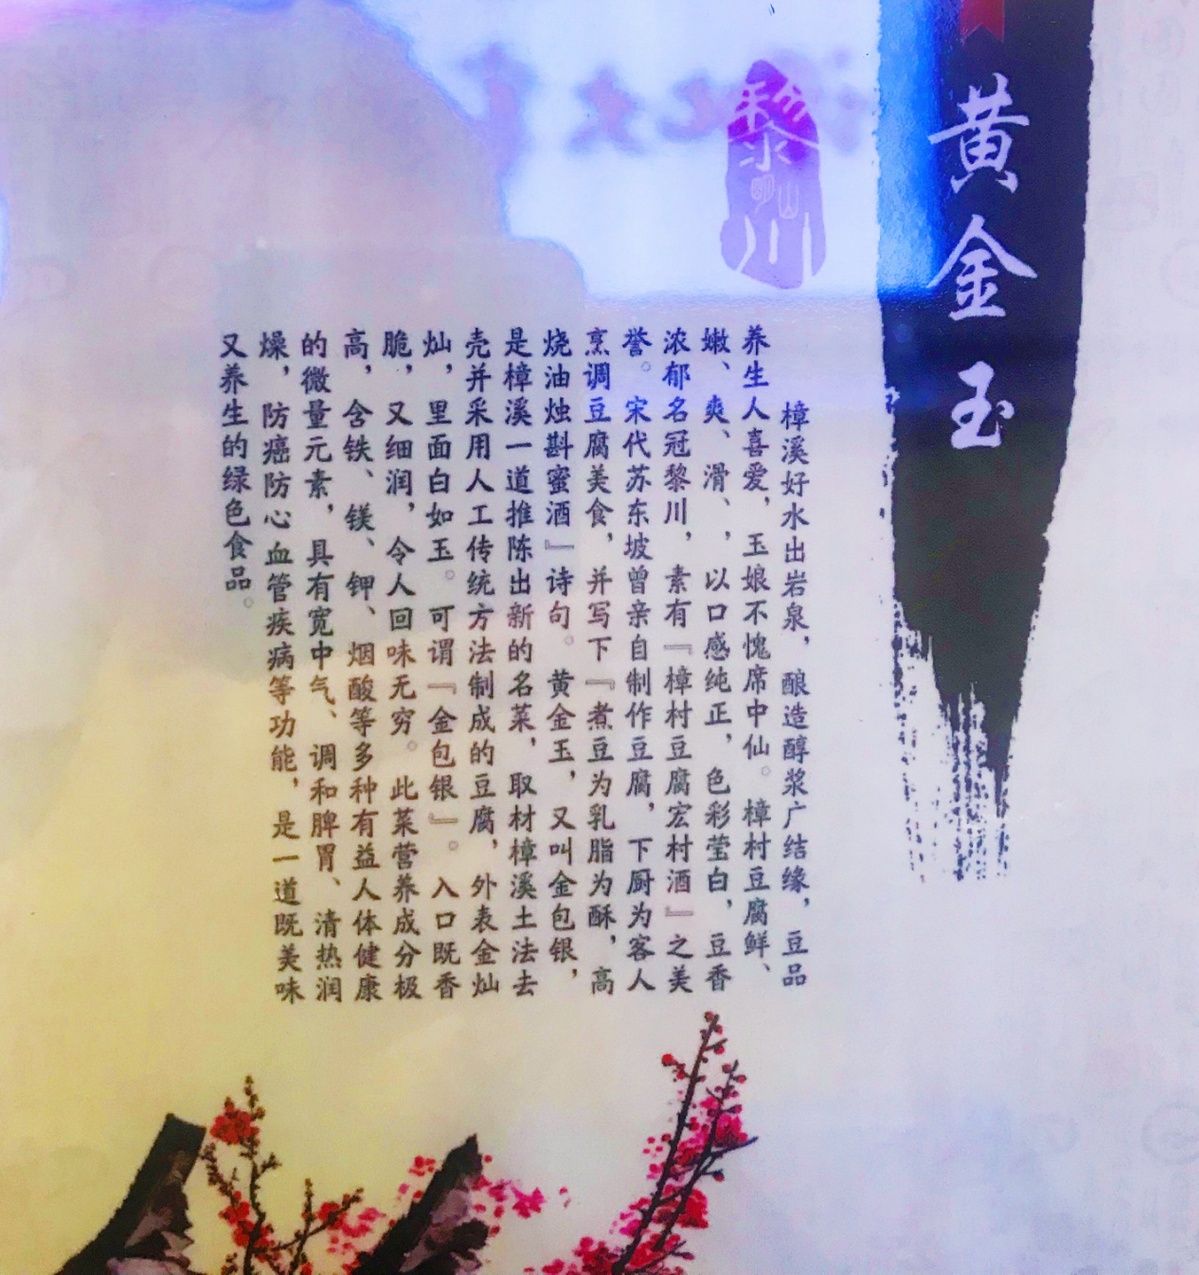 黄金玉
黎川
樟溪好水出岩泉，酿造醇浆广结缘，豆品
养生人喜爱，玉娘不愧席中仙。樟村豆腐鲜、
嫩、爽、滑、，以口感纯正，色彩莹白，豆香
浓郁名冠黎川，素有『樟村豆腐宏村酒』之美
誉。宋代苏东坡曾亲自制作豆腐，下厨为客人
烹调豆腐美食，并写下『煮豆为乳脂为酥，高
烧油烛斟蜜酒』诗句。黄金玉，又叫金包银，
是樟溪一道推陈出新的名菜，取材樟溪土法去
壳并采用人工传统方法制成的豆腐，外表金灿
灿，里面白如玉。可谓『金包银』。入口既香
脆，又细润，令人回味无穷。此菜营养成分极
高，含铁、镁、钾、烟酸等多种有益人体健康
的微量元素，具有宽中气、调和脾胃、清热润
燥，防癌防心血管疾病等功能，是一道既美味
又养生的绿色食品。